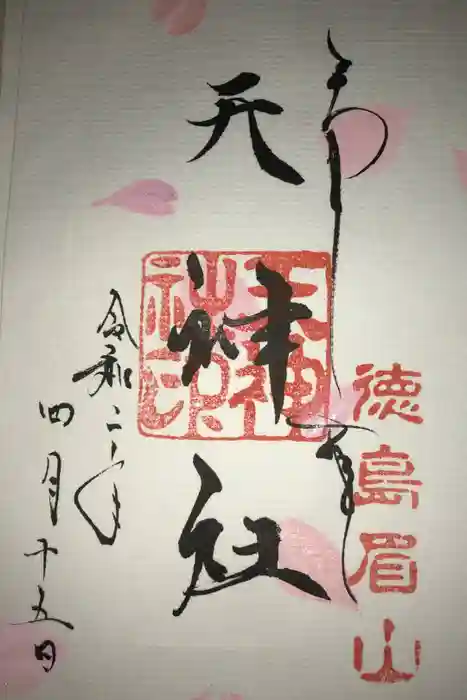 奉拝
徳島眉山
天神社
天神社印
令和二年
四月十五日